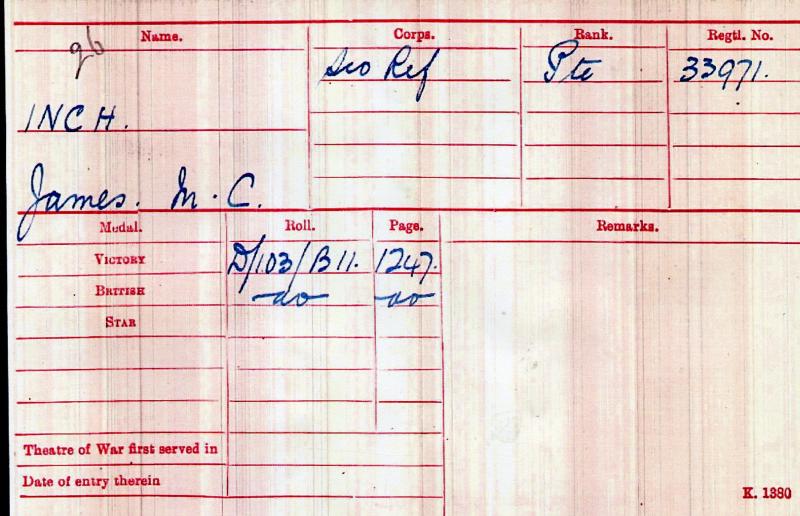 Name. Corps. Rank. Regtl. No.
Pte 33971.
INCH.
James. M. C.
Medal. Roll. Page. Remarks.
VICTORY D/103/B11. 1247.
BRITISH -do- -do-
STAR
Theatre of War first served in
Date of entry therein
K. 1380